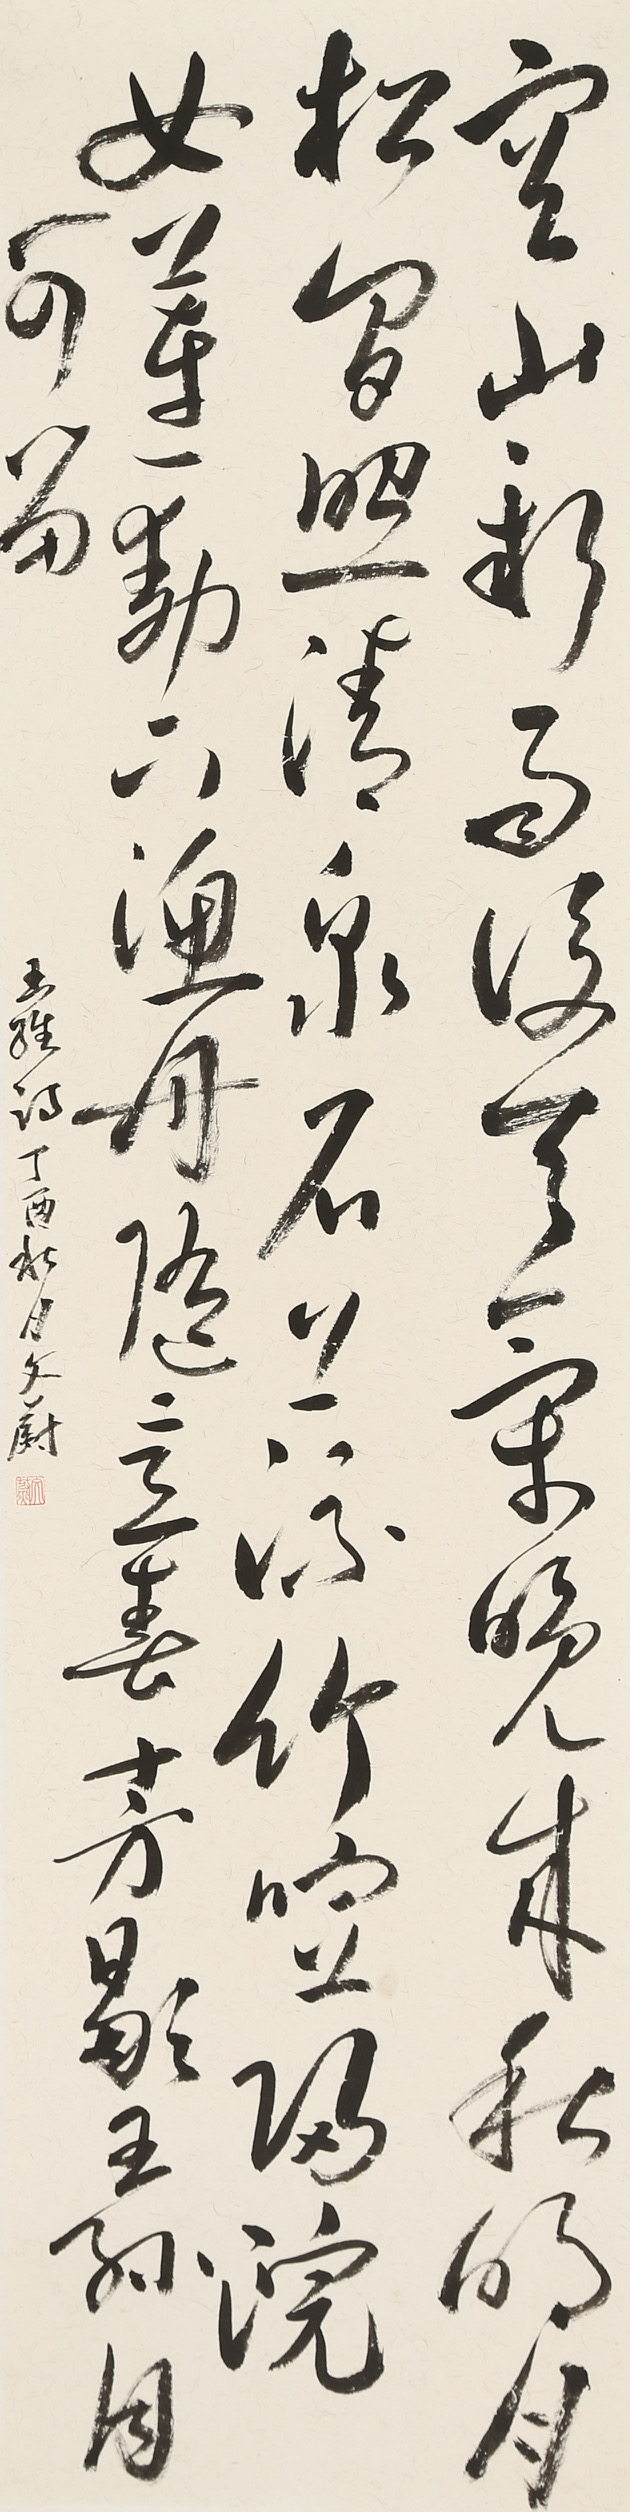 空山新雨後天氣晚來秋明月
松間照清泉石上流竹喧歸浣
女蓮動下漁舟隨意春芳歇王孫自
可留
王維詩丁酉秋月文蔚